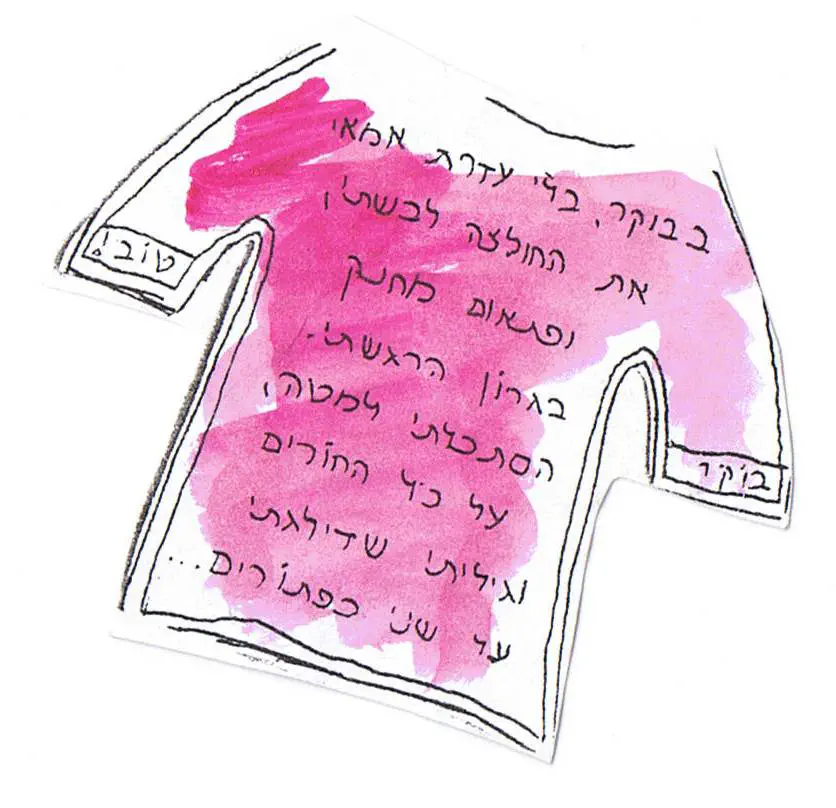 בבוקר, בלי עזרת אמא׳
את החולצה לבשתי
ופתאום מחנק
בגרון הרגשתי.
הסתכלתי למטה,
על כל החורים
וגיליתי שדילגתי
על שני כפתורים...
בוקר
טוב!